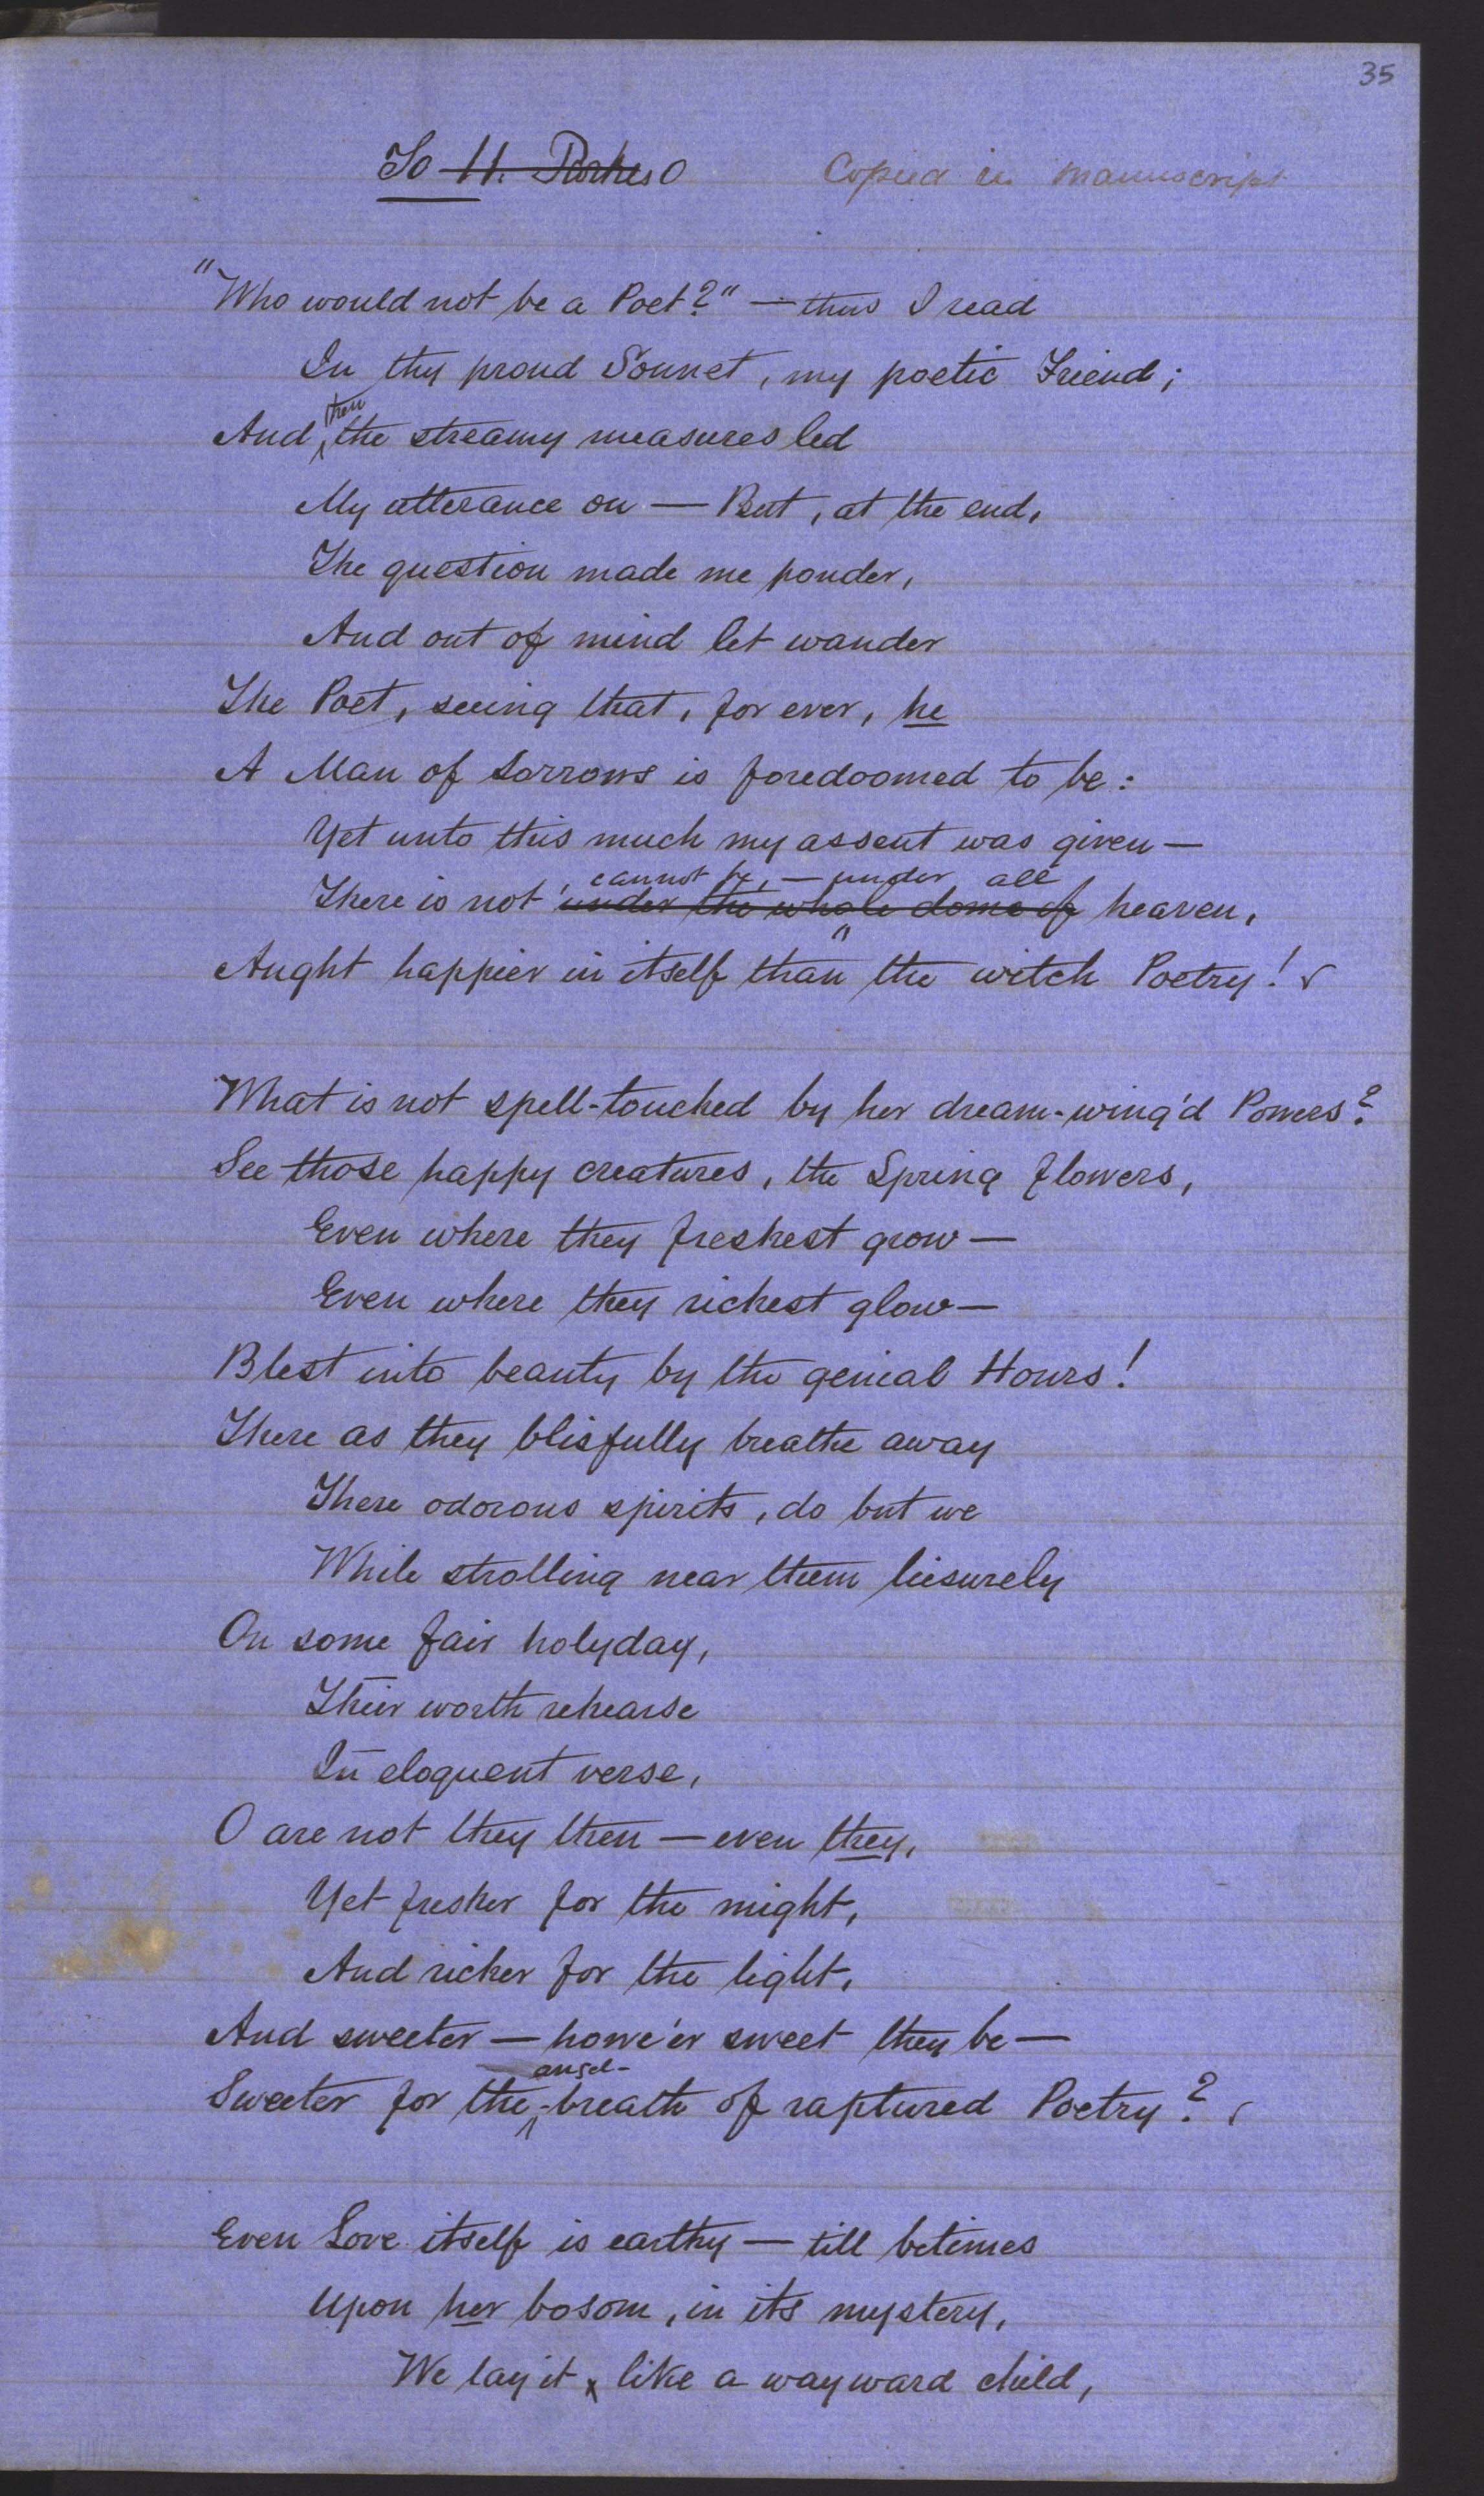 35
To H. Parkes
Copied in manuscript
"Who would not be a Poet?" — thus I read
In thy proud Sonnet, my poetic Friend;
And then the streamy measures led
My utterance on — But, at the end,
The question made me ponder,
And out of mind let wander
The Poet, seeing that, for ever, he
A Man of Sorrows is foredoomed to be:
Yet unto this much my assent was given —
cannot be, — under all
There is not under the whole dome of heaven,
Aught happier in itself than the witch Poetry!
What is not spell-touched by her dream-wing'd Powers?
See those happy creatures, the Spring flowers,
Even where they freshest grow —
Even where they richest glow —
Blest into beauty by the genial Hours!
There as they blisfully breathe away
There odorous spirits, do but we
While strolling near them liesurely
On some fair holyday,
Their worth rehearse
In eloquent verse,
O are not they then — even they,
Yet fresher for the might,
And richer for the light,
And sweeter — howe'er sweet they be —
Sweeter for the angel-breath of raptured Poetry?
Even Love itself is earthy — till betimes
Upon her bosom, in its mystery,
We lay it, like a wayward child,